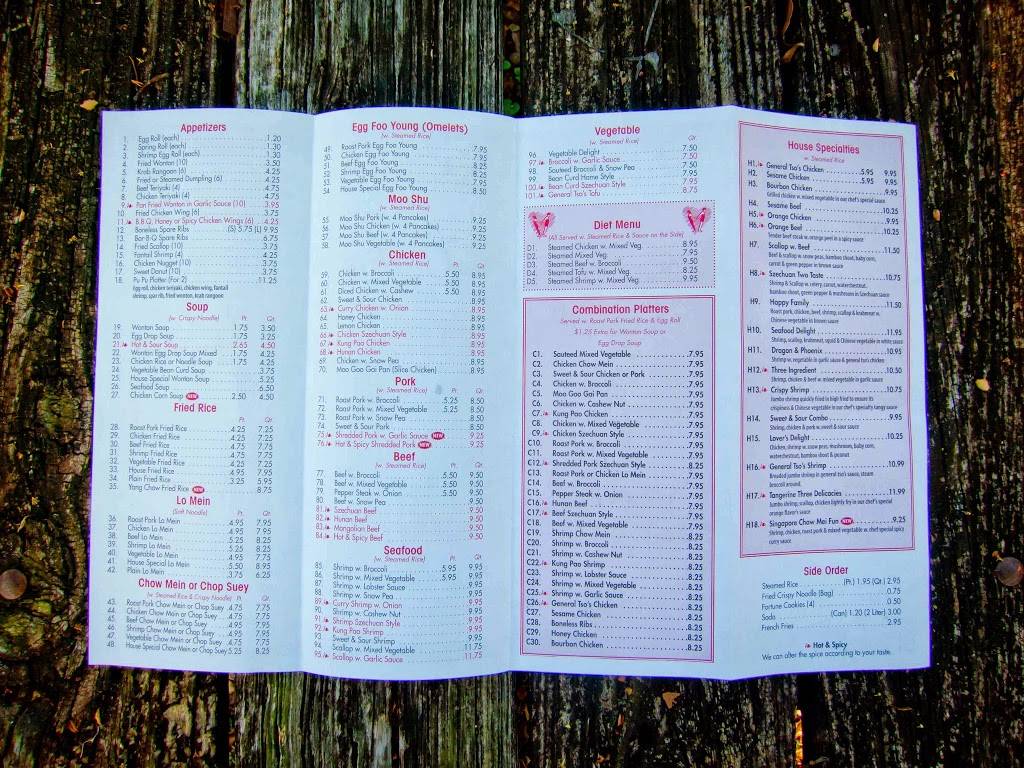 Appetizers
1. Egg Roll (each) 1.20
2. Spring Roll (each) 1.30
3. Shrimp Egg Roll (each) 1.30
4. Fried Wonton (10) 3.50
5. Krab Rangoon (6) 4.25
6. Fried or Steamed Dumpling (6) 4.25
7. Beef Teriyaki (4) 4.75
8. Chicken Teriyaki (4) 4.75
9. Pan Fried Wonton in Garlic Sauce (10) 3.95
10 Fried Chicken Wing (6) 3.75
11. B.B.Q. Honey or Spicy Chicken Wings (6) 4.25
12. Boneless Spare Ribs (S) 5.75 (L) 9.95
13. Bar-B-Q Spare Ribs 6.75
14. Fried Scallop (10) 3.75
15. Fantail Shrimp (4) 4.25
16. Chicken Nugget (10) 3.75
17. Sweet Donut (10) 3.75
18. Pu Pu Platter (For 2) 11.25
Egg roll, chicken teriyaki, chicken wing, fantail
shrimp, spar rib, fried wonton, krab rangoon
Soup
(w. Crispy Noodle) Pt. Qt.
19. Wonton Soup 1.75 3.50
20. Egg Drop Soup 1.75 3.25
21. Hot & Sour Soup 2.65 4.50
22. Wonton Egg Drop Soup Mixed 1.75 4.25
23. Chicken Rice or Noodle Soup 1.75 4.25
24. Vegetable Bean Curd Soup 3.75
25. House Special Wonton Soup 5.25
26. Seafood Soup 6.50
27. Chicken Corn Soup NEW 2.50 4.50
Fried Rice
Pt. Qt.
28. Roast Pork Fried Rice 4.25 7.25
29. Chicken Fried Rice 4.25 7.25
30. Beef Fried Rice 4.75 7.75
31. Shrimp Fried Rice 4.75 7.75
32. Vegetable Fried Rice 4.25 7.25
33. House Fried Rice 4.95 7.95
34. Plain Fried Rice 3.25 5.95
35. Yang Chow Fried Rice NEW 8.75
Lo Mein
(Soft Noodle) Pt. Qt.
36. Roast Pork Lo Mein 4.95 7.95
37. Chicken Lo Mein 4.95 7.95
38. Beef Lo Mein 5.25 8.25
39. Shrimp Lo Mein 5.25 8.25
40. Vegetable Lo Mein 4.95 7.75
41. House Special Lo Mein 5.50 8.95
42. Plain Lo Mein 3.75 6.25
Chow Mein or Chop Suey
(w. Steamed Rice & Crispy Noodle) Pt. Qt.
43. Roast Pork Chow Mein or Chop Suey 4.75 7.75
44. Chicken Chow Mein or Chop Suey 4.75 7.75
45. Beef Chow Mein or Chop Suey 4.95 7.95
46. Shrimp Chow Mein or Chop Suey 4.95 7.95
47. Vegetable Chow Mein or Chop Suey 4.75 7.75
48. House Special Chow Mein or Chop Suey 5.25 8.25
Egg Foo Young (Omelets)
(w. Steamed Rice)
49. Roast Pork Egg Foo Young 7.95
50. Chicken Egg Foo Young 7.95
51. Beef Egg Foo Young 8.25
52. Shrimp Egg Foo Young 8.25
53. Vegetable Egg Foo Young 7.95
54. House Special Egg Foo Young 8.50
Moo Shu
(w. Steamed Rice)
55. Moo Shu Pork (w. 4 Pancakes) 9.25
56. Moo Shu Chicken (w. 4 Pancakes) 9.25
57. Moo Shu Beef (w. 4 Pancakes) 9.25
58. Moo Shu Vegetable (w. 4 Pancakes) 9.25
Chicken
(w. Steamed Rice) Pt. Qt.
59. Chicken w. Broccoli 5.50 8.50
60. Chicken w. Mixed Vegetable 5.50 8.50
61. Diced Chicken w. Cashew 5.50 8.50
62. Sweet & Sour Chicken 8.50
63. Curry Chicken w. Onion 8.95
64. Honey Chicken 8.95
65. Lemon Chicken 8.95
66. Chicken Szechuan Style 8.95
67. Kung Pao Chicken 8.95
68. Hunan Chicken 8.95
69. Chicken w. Snow Pea 8.95
70. Moo Goo Gai Pan (Slice Chicken) 8.95
Pork
(w. Steamed Rice) Pt. Qt.
71. Roast Pork w. Broccoli 5.25 8.50
72. Roast Pork w. Mixed Vegetable 5.25 8.50
73. Roast Pork w. Snow Pea 8.50
74. Sweet & Sour Pork 8.50
75. Shredded Pork w. Garlic Sauce NEW 9.25
76. Hot & Spicy Shredded Pork NEW 9.25
Beef
(w. Steamed Rice) Pt. Qt.
77. Beef w. Broccoli 5.50 9.50
78. Beef w. Mixed Vegetable 5.50 9.50
79. Pepper Steak w. Onion 5.50 9.50
80. Beef w. Snow Pea 9.50
81. Szechuan Beef 9.50
82. Hunan Beef 9.50
83. Mongolian Beef 9.50
84. Hot & Spicy Beef 9.50
Seafood
(w. Steamed Rice) Pt. Qt.
85. Shrimp w. Broccoli 5.95 9.95
86. Shrimp w. Mixed Vegetable 5.95 9.95
87. Shrimp w. Lobster Sauce 9.95
88. Shrimp w. Snow Pea 9.95
89. Curry Shrimp w. Onion 9.95
90. Shrimp w. Cashew Nut 9.95
91. Shrimp Szechuan Style 9.95
92. Kung Pao Shrimp 9.95
93. Sweet & Sour Shrimp 9.95
94. Scallop w. Mixed Vegetable 11.75
95. Scallop w. Garlic Sauce 11.75
Vegetable
(w. Steamed Rice) Qt.
96 Vegetable Delight 7.50
97. Broccoli w. Garlic Sauce 7.50
98. Sauteed Broccoli & Snow Pea 7.50
99. Bean Curd Home Style 7.95
100. Bean Curd Szechuan Style 7.95
101. General Tso's Tofu 8.75
Diet Menu
(All Served w. Steamed Rice & Sauce on the Side)
D1. Steamed Chicken w. Mixed Veg. 8.95
D2. Steamed Mixed Veg. 7.95
D3. Steamed Beef w. Broccoli 9.50
D4. Steamed Tofu w. Mixed Veg. 8.25
D5. Steamed Shrimp w. Mixed Veg. 9.95
Combination Platters
Served w. Roast Pork Fried Rice & Egg Roll
$1.25 Extra for Wonton Soup or
Egg Drop Soup
C1. Sauteed Mixed Vegetable 7.95
C2. Chicken Chow Mein 7.95
C3. Sweet & Sour Chicken or Pork 7.95
C4. Chicken w. Broccoli 7.95
C5. Moo Goo Gai Pan 7.95
C6. Chicken w. Cashew Nut 7.95
C7. Kung Pao Chicken 7.95
C8. Chicken w. Mixed Vegetable 7.95
C9. Chicken Szechuan Style 7.95
C10. Roast Pork w. Broccoli 7.95
C11. Roast Pork w. Mixed Vegetable 7.95
C12. Shredded Pork Szechuan Style 8.25
C13. Roast Pork or Chicken Lo Mein 7.95
C14. Beef w. Broccoli 7.95
C15. Pepper Steak w. Onion 7.95
C16. Hunan Beef 7.95
C17. Beef Szechuan Style 7.95
C18. Beef w. Mixed Vegetable 7.95
C19. Shrimp Chow Mein 8.25
C20. Shrimp w. Broccoli 8.25
C21. Shrimp w. Cashew Nut 8.25
C22. Kung Pao Shrimp 8.25
C23. Shrimp w. Lobster Sauce 8.25
C24. Shrimp w. Mixed Vegetable 8.25
C25. Shrimp w. Garlic Sauce 8.25
C26. General Tso's Chicken 8.25
C27. Sesame Chicken 8.25
C28. Boneless Ribs 8.25
C29. Honey Chicken 8.25
C30. Bourbon Chicken 8.25
House Specialties
w. Steamed Rice
H1. General Tso's Chicken 5.95 9.95
H2. Sesame Chicken 5.95 9.95
H3. Bourbon Chicken 9.95
Grilled chicken w. mixed vegetable in our chef's special sauce
H4. Sesame Beef 10.25
H5. Orange Chicken 9.95
H6. Orange Beef 10.25
Tender beef steak w. orange peel in a spicy sauce
H7. Scallop w. Beef 11.50
Beef & scallop w. snow peas, bamboo shoot, baby corn,
carrot & green pepper in brown sauce
H8. Szechuan Two Taste 10.75
Shrimp & Scallop w. celery, carrot, waterchestnut,
bamboo shoot, green pepper & mushroom in Szechuan sauce
H9. Happy Family 11.50
Roast pork, chicken, beef, shrimp, scallop & krabmeat w.
Chinese vegetable in brown sauce
H10. Seafood Delight 11.95
Shrimp, scallop, krabmeat, squid & Chinese vegetable in white sauce
H11. Dragon & Phoenix 10.95
Shrimp w. vegetable in garlic sauce & general tso's chicken
H12. Three Ingredient 10.50
Shrimp, chicken & beef w. mixed vegetable in garlic sauce
H13. Crispy Shrimp 10.75
Jumbo shrimp quickly fried in high fried to ensure its
crispiness & Chinese vegetable in our chef's specialty tangy sauce
H14. Sweet & Sour Combo 9.95
Shrimp, chicken & pork w. sweet & sour sauce
H15. Lover's Delight 10.25
Chicken, shrimp w. snow peas, mushroom, baby corn,
waterchestnut, bamboo shoot & peanut
H16. General Tso's Shrimp 10.99
Breaded jumbo shrimp in general tso's sauce, steam
broccoli around.
H17. Tangerine Three Delicacies 11.99
Jumbo shrimp, scallop, chicken lightly fry in our chef's special
orange flavor's sauce
H18. Singapore Chow Mei Fun NEW 9.25
Shrimp, chicken, roast pork & mixed vegetable w. chef special spicy
curry sauce
Side Order
Steamed Rice (Pt.) 1.95 (Qt.) 2.95
Fried Crispy Noodle (Bag) 0.75
Fortune Cookies (4) 0.50
Soda (Can) 1.20 (2 Liter) 3.00
French Fries 2.95
Hot & Spicy
We can alter the spice according to your taste.